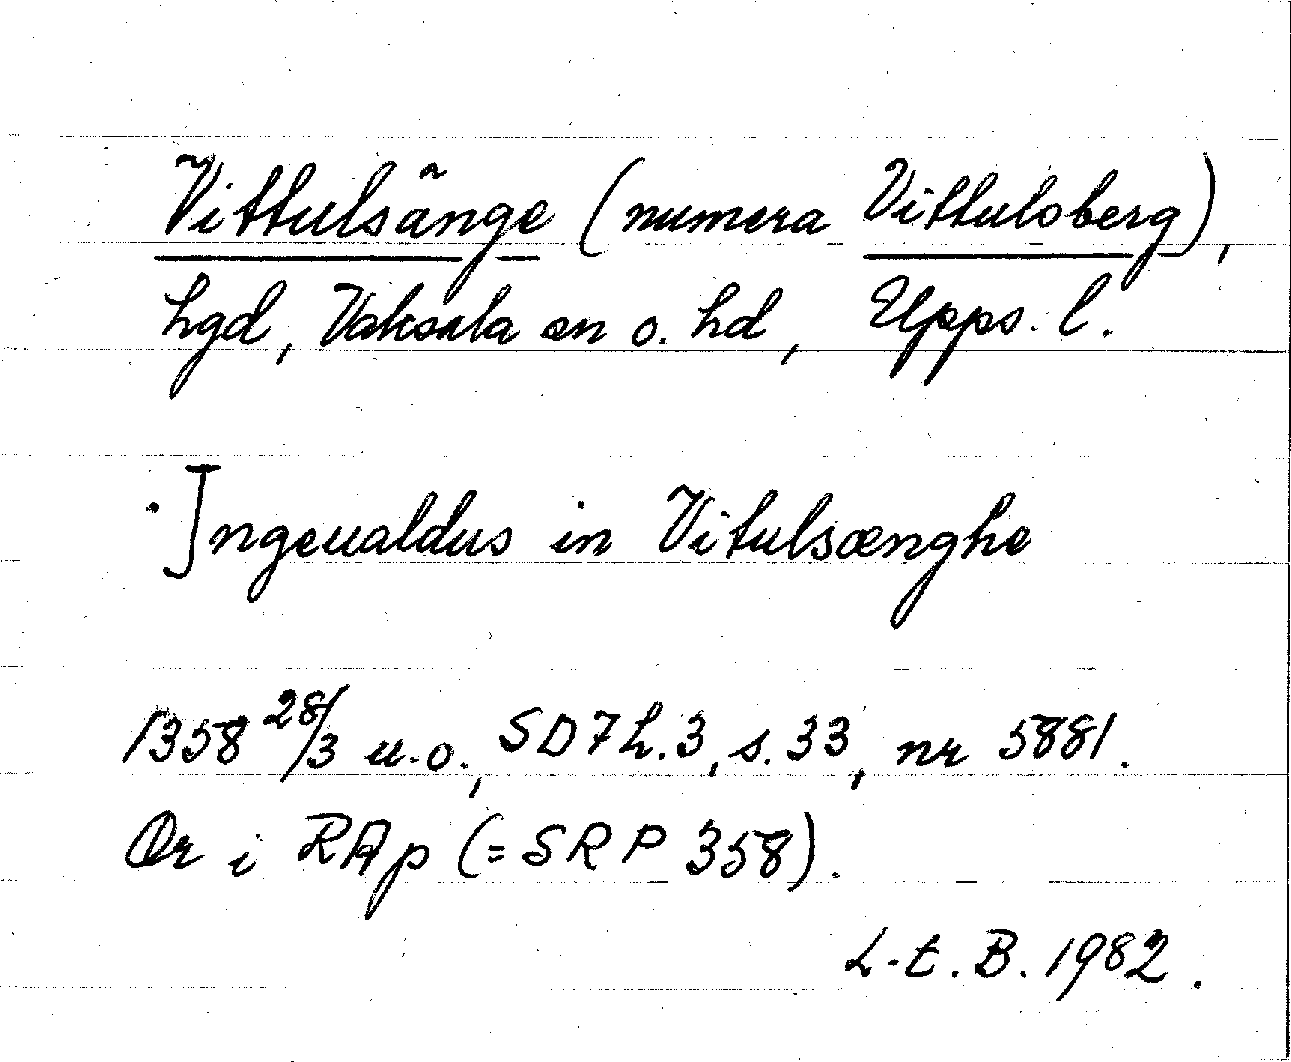 Vittulsänge (numera Vittulsberg),
hgd, Vaksala sn o. hd, Upps. l.
Ingeualdus in Vitulsænghe
1358 28/3 u.o., SD7 h.3, s. 33, nr 5881.
Or i RAp (=SRP 358).
L-t. B. 1982.